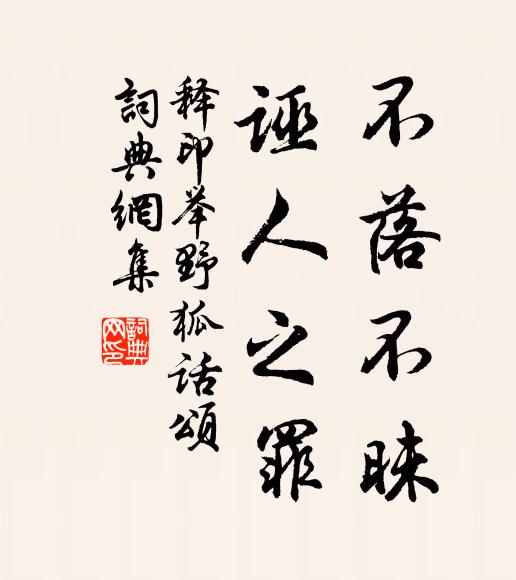 不落不昧
诬人之罪
释印举野狐话颂
詞典網集
詞典网印